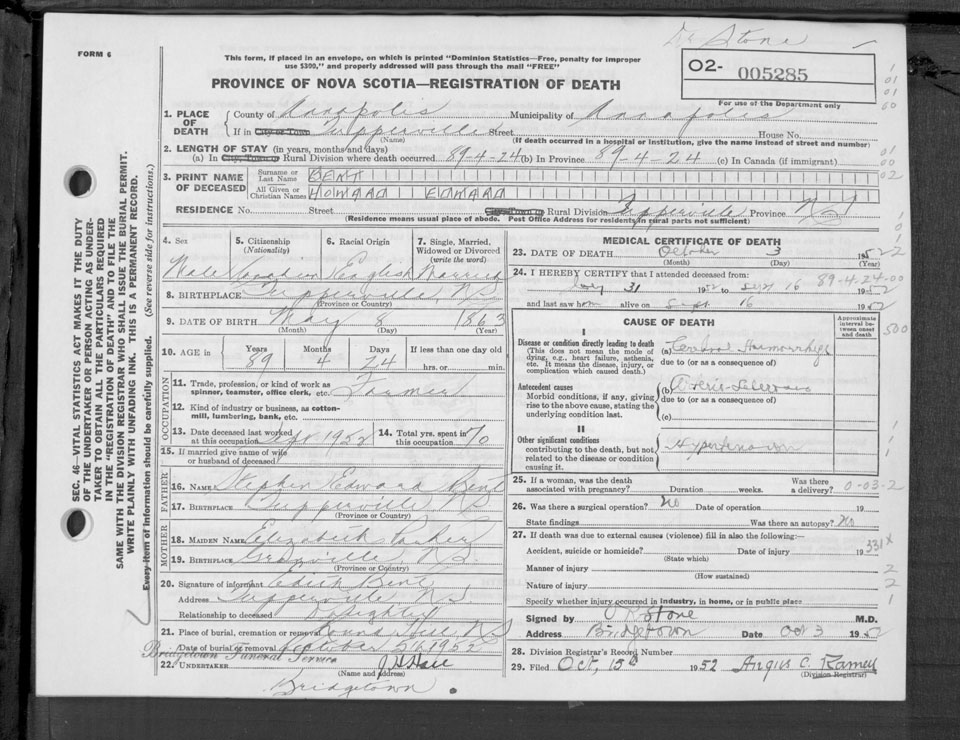 Dr Stone
FORM 6
This form, if placed in an envelope, on which is printed "Dominion Statistics—Free, penalty for improper
use $300," and properly addressed will pass through the mail "FREE"
O2- 005285
For use of the Department only
PROVINCE OF NOVA SCOTIA—REGISTRATION OF DEATH
1. PLACE OF DEATH
County of Annapolis Municipality of Annapolis
If in City or Town Tupperville Street House No.
(Name) (If death occurred in a hospital or institution, give the name instead of street and number)
2. LENGTH OF STAY (in years, months and days)
(a) In City, Town or Rural Division where death occurred 89-4-24 (b) In Province 89-4-24 (c) In Canada (if immigrant)
3. PRINT NAME OF DECEASED
Surname or Last Name BENT
All Given or Christian Names HOWARD EDWARD
RESIDENCE No. Street City or Town or Rural Division Tupperville Province N S
(Residence means usual place of abode. Post Office Address for residents in rural parts not sufficient)
SEC. 46—VITAL STATISTICS ACT MAKES IT THE DUTY
OF THE UNDERTAKER OR PERSON ACTING AS UNDER-
TAKER TO OBTAIN ALL THE PARTICULARS REQUIRED
IN THE "REGISTRATION OF DEATH" AND TO FILE THE
SAME WITH THE DIVISION REGISTRAR WHO SHALL ISSUE THE BURIAL PERMIT.
WRITE PLAINLY WITH UNFADING INK. THIS IS A PERMANENT RECORD.
Every item of information should be carefully supplied. (See reverse side for instructions.)
4. Sex 5. Citizenship (Nationality) 6. Racial Origin 7. Single, Married, Widowed or Divorced (write the word)
Male Canadian English Married
8. BIRTHPLACE Tupperville, N S
(Province or Country)
9. DATE OF BIRTH May 8 1863
(Month) (Day) (Year)
10. AGE in Years 89 Months 4 Days 24 If less than one day old hrs. or min.
OCCUPATION
11. Trade, profession, or kind of work as spinner, teamster, office clerk, etc. Farmer
12. Kind of industry or business, as cotton-mill, lumbering, bank, etc.
13. Date deceased last worked at this occupation Sept 1952 14. Total yrs. spent in this occupation 70
15. If married give name of wife or husband of deceased
FATHER
16. NAME Stephen Edward Bent
17. BIRTHPLACE Tupperville N S
(Province or Country)
MOTHER
18. MAIDEN NAME Elizabeth
19. BIRTHPLACE N.S.
(Province or Country)
20. Signature of informant Edith Bent
Address Tupperville N S
Relationship to deceased Daughter
21. Place of burial, cremation or removal Round Hill, N S
Date of burial or removal October 5th 1952
Bridgetown Funeral Service
22. UNDERTAKER J H Hall
(Name and Address)
Bridgetown
MEDICAL CERTIFICATE OF DEATH
23. DATE OF DEATH October 3 1952
(Month) (Day)
24. I HEREBY CERTIFY that I attended deceased from:
31 1952 to Sept 16 1952
89-4-24-00
and last saw him alive on Sept. 16 1952
CAUSE OF DEATH
Approximate interval between onset and death
I
Disease or condition directly leading to death
(This does not mean the mode of dying, e.g., heart failure, asthenia, etc. It means the disease, injury, or complication which caused death.)
(a) Cerebral Haemorrhage
due to (or as a consequence of)
Antecedent causes
Morbid conditions, if any, giving rise to the above cause, stating the underlying condition last.
(b) Arterio-Sclerosis
due to (or as a consequence of)
(c)
II
Other significant conditions
contributing to the death, but not related to the disease or condition causing it.
Hypertension
25. If a woman, was the death associated with pregnancy? Duration weeks. Was there a delivery?
0-03-2
26. Was there surgical operation? No Date of operation 19
State findings Was there an autopsy? No
27. If death was due to external causes (violence) fill in also the following:—
Accident, suicide or homicide? Date of injury 19
(State which)
331x
Manner of injury
(How sustained)
Nature of injury
Specify whether injury occurred in industry, in home, or in public place
Signed by Stone M.D.
Address Bridgetown Date Oct 3 1952
28. Division Registrar's Record Number
29. Filed Oct, 15th 1952 Angus C. Ramey
(Division Registrar)